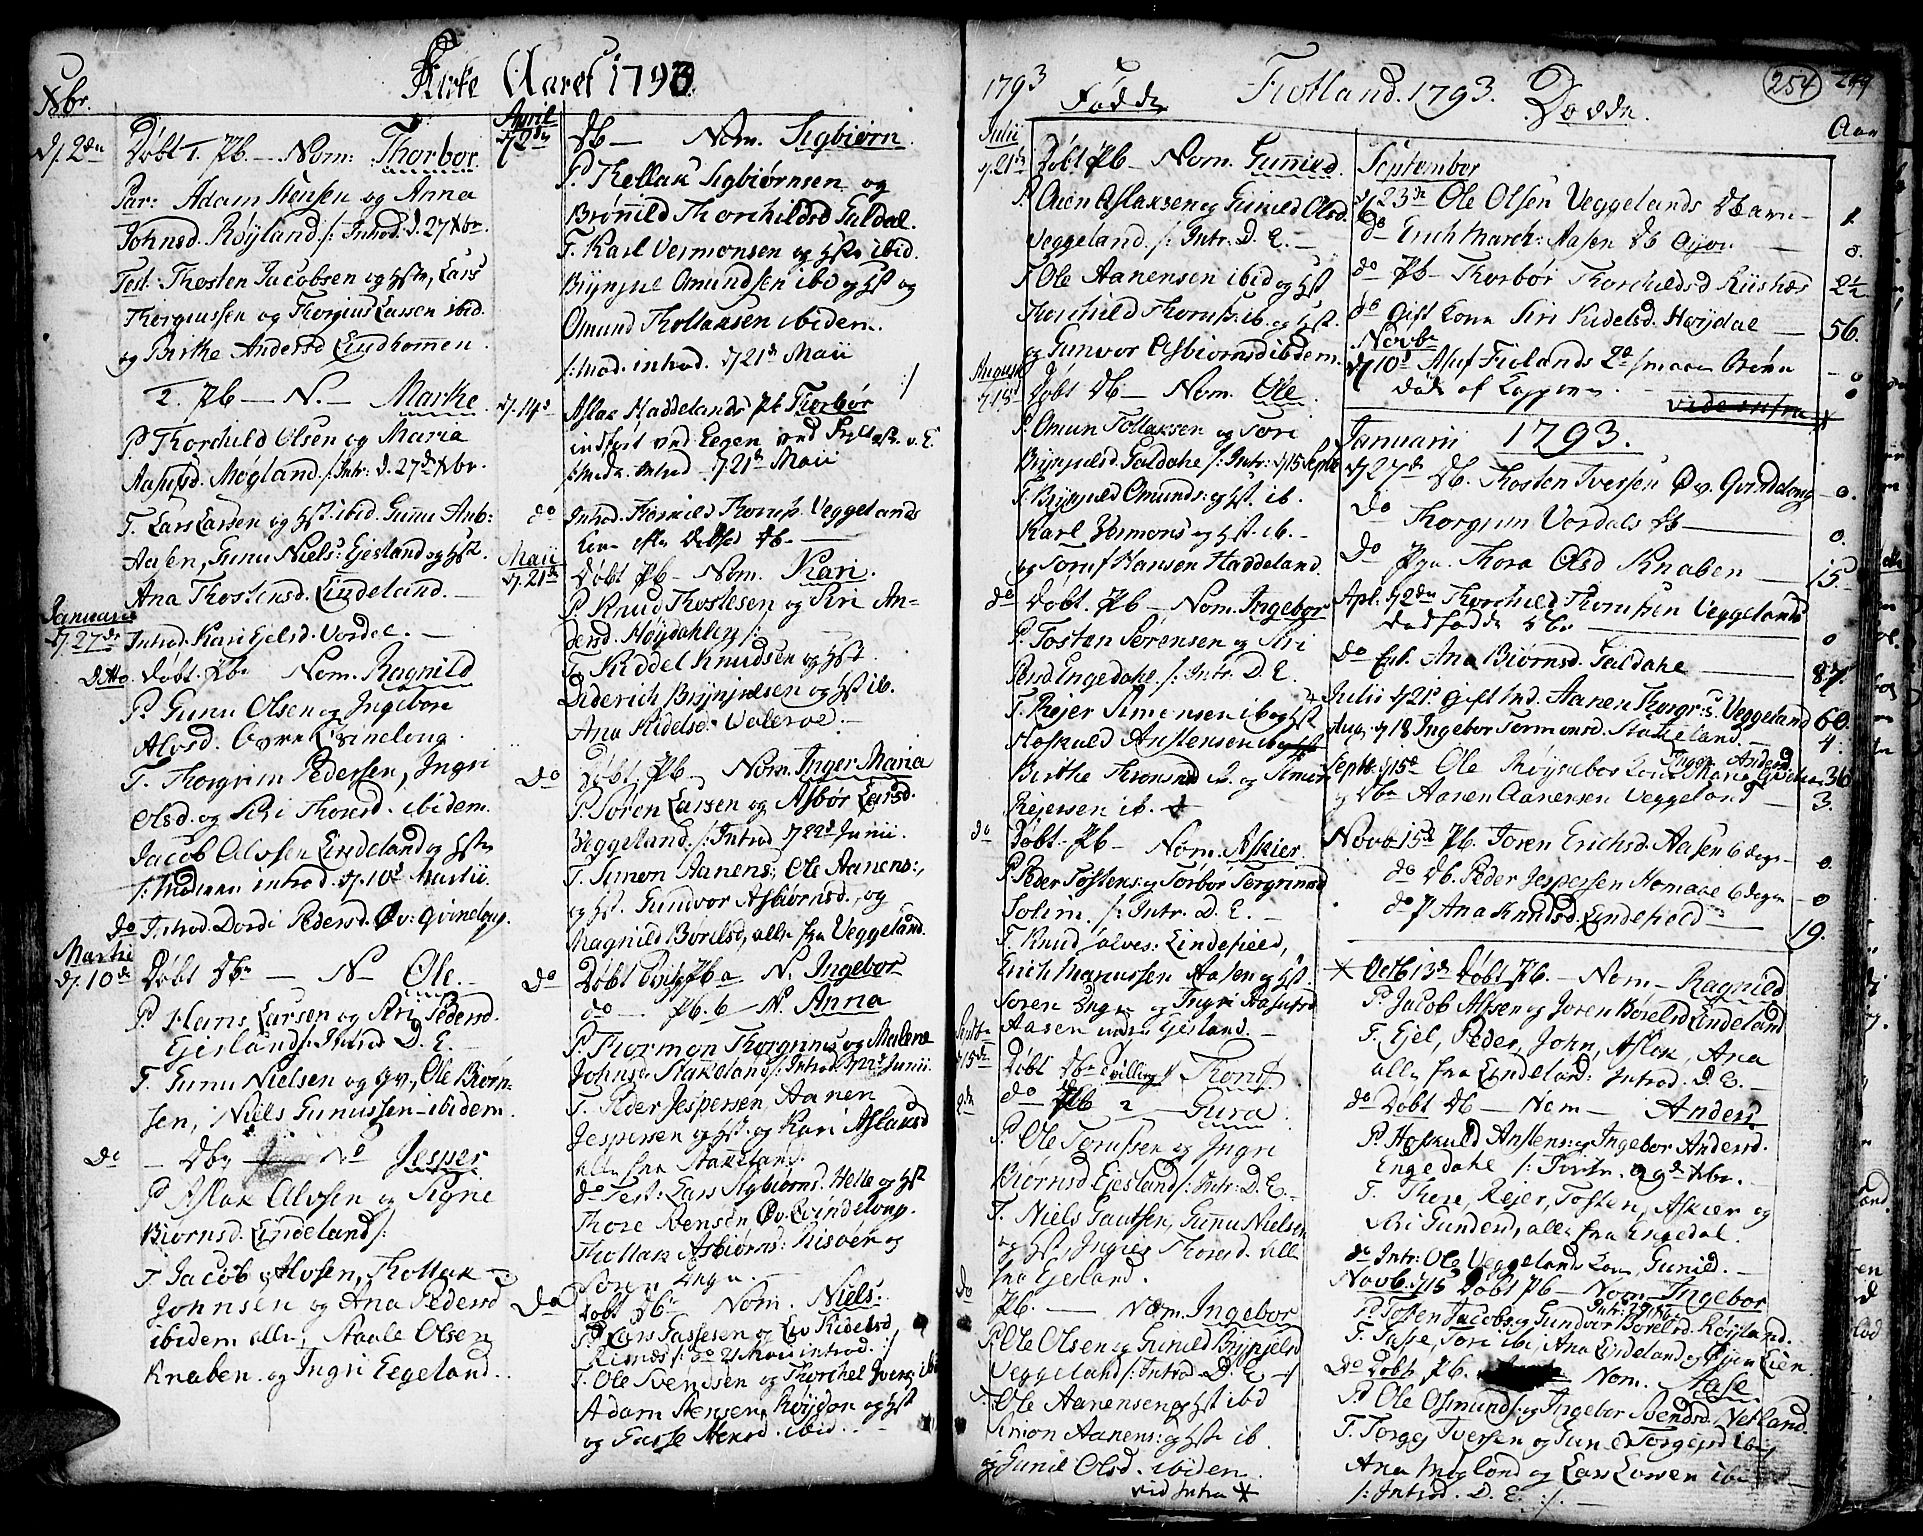 Kirke Aaret 1793
Xbr.
d. 2den Døbt 1. Pb. — Nom: Thorbor
Par: Adam Stensen og Anna
Johnsd. Røyland /: Introd. d. 27 Xbr.
Test: Thosten Jacobsen og Hst, Lars
Thorgiussen og Thorgius Larsen ibid.
og Birthe Andersd Lindhommen.
2. Pb — N. — Marthe
P. Thorchild Olsen og Maria
Aasulfsd. Møgland /: Intr: d. 27de Xbr.
T. Lars Larsen og Hst ibid. Gunnu Aub:
Aasen, Gunu Niels: Ejesland og Hst.
Ana Thostensd. Lindeland. —
Januarii
d. 27de Introd. Kari Ejelsd. Vordal. —
ditto Døbt. Pb. Nom. Ragnild
P. Gunu Olsen og Ingebor
Alvsd. Øvre Kvindlong.
T. Thorgrim Pedersen, Ingri
Olsd. og Siri Thorsd. ibidem.
Jacob Alvsen Lindeland og Hst
/: Moderen introd. d. 10de Martii.
do Introd. Dordi Pedersd. Øv: Qvinlong.
Martii
d. 10de Døbt Db. — N — Ole.
P. Hans Larsen og Siri Pedersd.
Ejesland /: Introd D. E. —
T. Gunu Nielsen og Qv, Ole Biørn-
sen, Niels Gunussen ibidem.
do — Db N Jesper
P. Aslak Alvsen og Signe
Biørnsd. Lindeland /:
T. Jacob Alvsen, Thollak
Johnsen og Ana Pedersd
ibidem alle, Staale Olsen
Knaben og Ingri Egeland.
April
d. 2den Db — Nom. Sigbiørn.
P. Thollak Sigbiørnsen og
Brønild Thorchildsd Guldal.
T. Karl Vermonsen og Hst ibid.
Brynjul Omundsen ibid og Hst og
Omund Thollaksen ibidem.
/: Mod. introd. d. 21de Maii :/
d. 14de Aslak Haddelands Pb Thorbør
/: Mod. Introd. d. 21de Maii
do Introd. Thorvild Thorus. Veggelands
Kone efter dødfød Db. —
Maii
d. 21de Døbt Pb — Nom. Kari.
P. Knud Thostesen og Siri An-
dersd. Høydahlen /:
T. Kiddel Knudsen og Hst
Diderich Brynjulsen og Hst ib.
Ana Kidelsd. Valeroe. —
do Døbt Pb — Nom. Inger Maria
P. Søren Larsen og Asbør Larsd.
Veggeland. /: Introd d. 22de Junii.
T. Simon Aanens:, Ole Aanens:,
og Hst. Gundvor Asbiørnsd, og
Magnild Børilsd, alle fra Veggeland.
do Døbt Pb a N. Ingebor
do — Pb. b — N. Anna
P. Thormon Thorgrimss og Malene
Johnsd Stakeland /: Introd d. 22de Junii
T. Peder Jespersen Aanen
Jespersen og Hst. og Kari Aslaksd
alle fra Stakeland.
do Test: Lars Sigbiørns. Helle og Hst
Thore Svensen Øv. Qvindlong.
Thollak Asbiørns: Risøen og
Søren Enge. —
do Døbt Db. Nom. Niels.
P. Lars Tassesen og Liv Kidelsd
Risnæs /: do 21 Maii introd. :/
T. Ole Svendsen og Thorchel Ivers ibi
Adam Stensen Røydon og Hst
og Tasse Stensd. ibid. —
1793 Fødde Fiotland. 1793. Dødde. 254
Aar
Julii
d. 21de Døbt Pb — Nom. Gunnild.
P. Onen Aslaksen og Gunild Olsd.
Veggeland. /: Intr. D. E. —
T. Ole Aanensen ibid og Hst
Thorchild Thorus. ib. og Hst.
og Gunvor Asbiørnsd ibidem.
August
d. 18de Døbt Db — Nom. Ole.
P. Omun Tollaksen og Tori
Brynjulsd. Guldahl /: Intr: d. 15 Septb
T. Brynjuld Omunds: og Hst ib.
Karl Vermons og Hst. ib. —
og Toruf Hansen Haddeland.
do Døbt. Pb — Nom. Ingebor
P. Tosten Sørensen og Siri
Persd Engedahl. /: Intr. D. E.
T. Rejer Simensen ib og Hst
Hoskuld Anstensen ib og Hst
Birthe Thronsd og Simen
Rejersen ib.
do Døbt — Pb — Nom. Askier
P. Peder Tostens: og Torbør Torgrimsd
Solim. /: Intr. D. E. —
T. Knud Alvs: Lindefield,
Erich Marcussen Aasen og Hst
Søren Enge og Ingri Aasulfsd
Aasen Ejesland. —
Septb
d. 15de Døbt Db tvilling Thor
do Pb 2 — Gura.
P. Ole Torussen og Ingri
Biørnsd Ejesland /: Intr: D. E. —
T. Niels Gautsen, Gunnu Nielsen
og Hst, Ingrid Thorsd. alle
fra Ejesland.
do Pb. — Nom. Ingebor
P. Ole Olsen og Gunild Brynjelsd
Veggeland /: Introd. D. E. :/
T. Ole Aanensen og Hst ibd
Simon Aanens: og Hst ib.
og Gunil Olsd. ibidem.
vid Intra *
September
d. 23de Ole Olsen Veggelands Dbarn — 1.
do Erich March: Aasen Db — 0.
do Pb — Thorbør Thorchildsd Risnæs 2½
do Gift Kone Siri Kidelsd. Høydal — 56.
Novbr
d. 10de Asuf Fiolands 2de smaae Brn — 0
døde af Kopperne. — 0
vide extra
Januarii 1793.
d. 27de Db. Thosten Iversen Øv. Qvindlong — 0.
do Thorgrim Vordals Db — 0.
do Pige Thora Olsd Knaben — 15.
Apl. d. 2den Thorchild Thorussen Veggelands
dødfødde Db — 0
do Enk. Ana Biørnsd. Guldahl — 87.
Julii d. 21de gift Md. Aanen Thorgr:s. Veggeland 60.
Aug. d. 18 Ingebor Tormonsd. Stakeland — 4.
Septb: d. 15de Ole Røynebos Kone Inger Andersd 36
do Db Aanen Aanensen Veggeland — 3.
Novb 15de Pb. Joren Erichsd. Aasen 6 dage — 0
do Db. Peder Jespersen Homme 6 dage — 0
do P Ana Knudsd. Lindefield — 19.
* Octb 13de Døbt Pb. — Nom — Ragnild
P. Jacob Alfsen og Joren Børelsd Lindeland
T. Ejel, Peder, John, Aslak, Ana
alle fra Lindeland: Introd. D. E. —
do Døbt Db — Nom — Anders
P. Hoskuld Anstens: og Ingebor Andersd.
Engedahl /: Intr. 29de Xbr. —
T. Thore, Rejer, Tosten, Askier og
Siri Gundersd, alle fra Engedal.
do Intr: Ole Veggelands Kone, Gunild. —
Novb. d. 15 Døbt Pb — Nom — Ingebor
P. Tosten Jacobs og Gundvor Børelsd. Røyland.
T. Tasse, Tori ibi, Ana Lindeland og Eien
do Døbt Pb. Nom. Aase
P. Ole Osmunds: og Ingebor Svendsd. Netland.
T. Torgej Iversen og Gun Torgejsd ibid
Ana Møgland og Lars Larsen ibi
/: Introd. D. E. :/ —